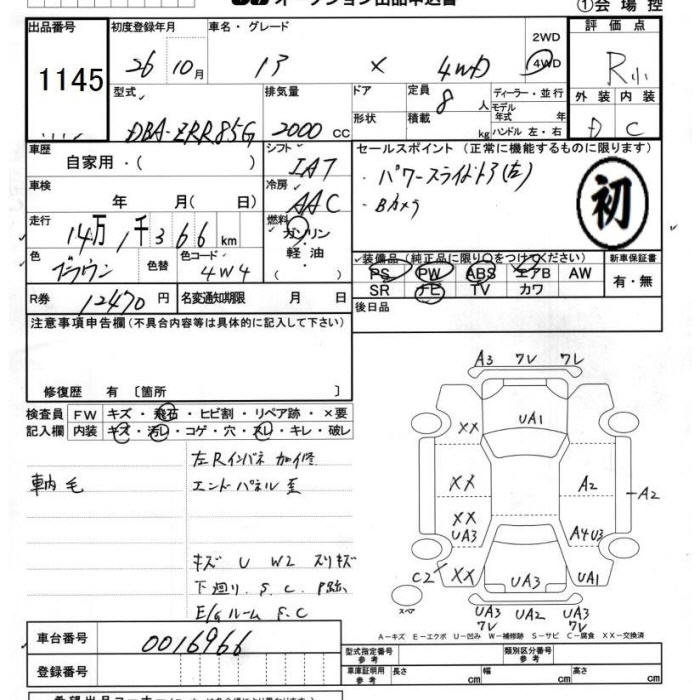 オークション出品申込書
①会場控
出品番号 初度登録年月 車名・グレード 2WD 4WD 評価点
1145
26 10月
13 X 4WD
R小
型式 排気量 ドア 定員 8人 ディーラー・並行
外装 内装
DBA-ZRR85G 2000cc 形状 積載 kg モデル年式 年 ハンドル 左・右
D C
車歴 シフト セールスポイント (正常に機能するものに限ります)
自家用・( ) IAT
・パワースライドドア(左)
車検 冷房 ・Bカメラ
初
年 月( 日) AAC
走行 燃料
14万1千366km ガソリン・軽油
色 色替 色コード 装備品(純正品に限り○をつけてください) 新車保証書
ブラウン 4W4 PS PW ABS エアB AW 有・無
SR ナビ TV カワ
R券 12470円 名変通知期限 月 日 後日品
注意事項申告欄(不具合内容等は具体的に記入して下さい)
修復歴 有 〔箇所 〕
検査員 FW キズ・飛石・ヒビ割・リペア跡・×要
記入欄 内装 キズ・汚レ・コゲ・穴・スレ・キレ・破レ
左Rインパネ加修
車内毛 エンドパネル歪
キズ U W2 スリキズ
下廻り S.C. P跡
E/gルーム S.C
A3 7V 7L
UA1
XX
XX A2 A2
XX
UA3 A4U3
C2 XX UA3 UA1
スペア
UA3 UA2 UA3
7V 7V
A-キズ E-エクボ U-凹み W-補修跡 S-サビ C-腐食 XX-交換済
車台番号 0016966
型式指定番号 参考 類別区分番号 参考
登録番号
車庫証明用 参考 長さ cm 幅 cm 高さ cm